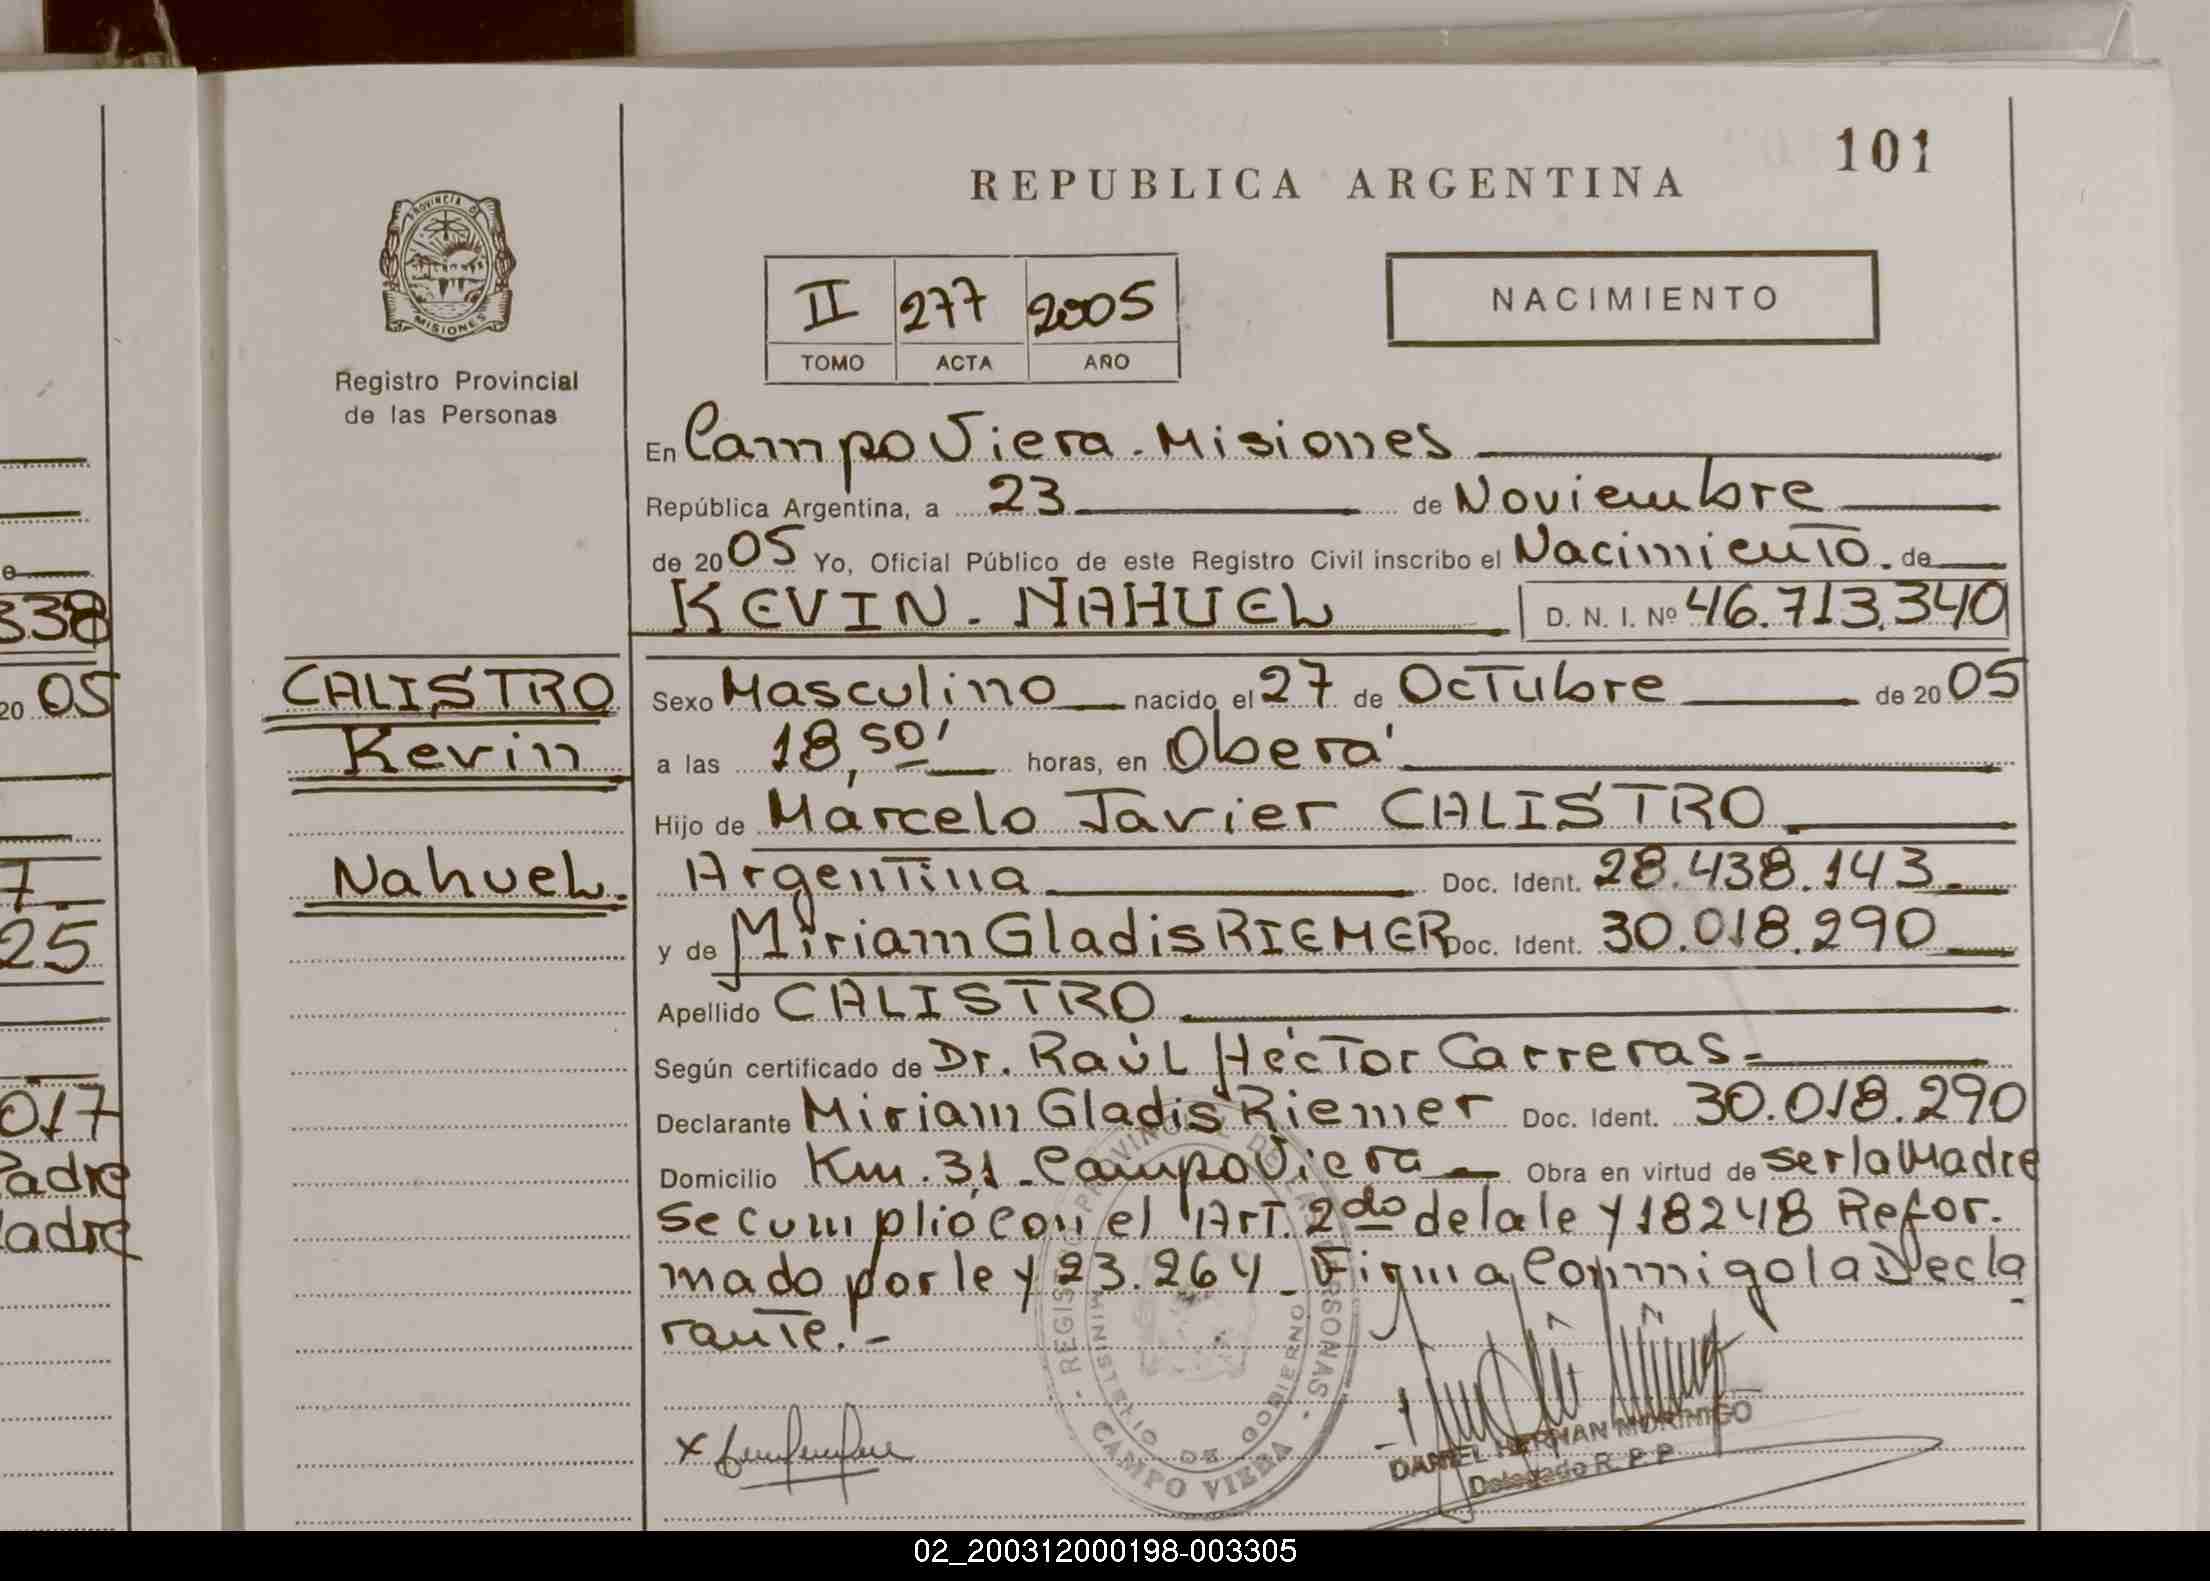 101
REPUBLICA ARGENTINA
PROVINCIA DE
MISIONES
Registro Provincial
de las Personas
II 277 2005
TOMO ACTA AÑO
NACIMIENTO
En Campo Viera - Misiones
República Argentina, a 23 de Noviembre
de 2005 Yo, Oficial Público de este Registro Civil inscribo el Nacimiento. de
KEVIN - NAHUEL D. N. I. Nº 46.713.340
CALISTRO
Kevin
Nahuel.
Sexo Masculino nacido el 27 de Octubre de 2005
a las 18,50' horas, en Oberá
Hijo de Marcelo Javier CALISTRO
Argentina Doc. Ident. 28.438.143
y de Miriam Gladis RIEMER Doc. Ident. 30.018.290
Apellido CALISTRO
Según certificado de Dr. Raúl Héctor Carreras -
Declarante Miriam Gladis Riemer Doc. Ident. 30.018.290
Domicilio Km. 31 - Campo Viera Obra en virtud de ser la Madre
Se cumplió con el Art. 2do de la ley 18248 Refor-
mado por ley 23.264 - Firma Conmigo la Decla
rante. -
REGISTRO PROVINCIAL DE LAS PERSONAS
MINISTERIO DE GOBIERNO
CAMPO VIERA
DANIEL HERNAN MORINIGO
Delegado R. P. P.
338
20 05
7.
25
017
Padre
Madre
02_200312000198-003305